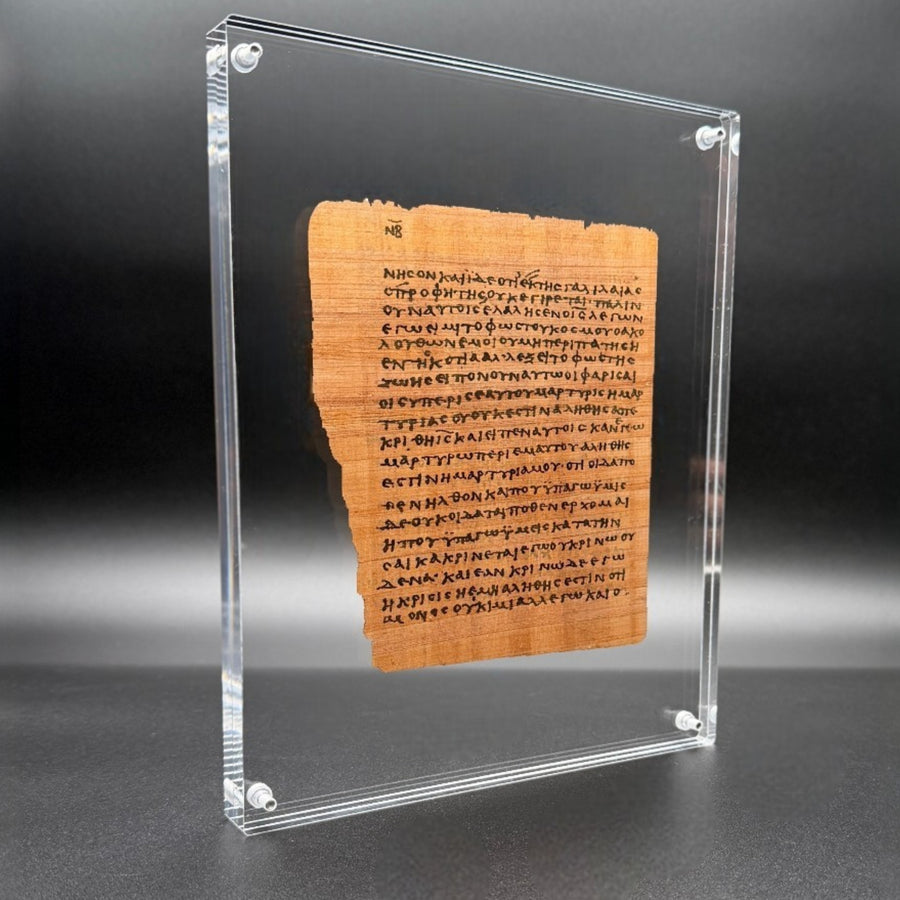 ΝΒ̅
ΝΗϹΟΝΚΑΙΙΔΕΟΤΙΕΚΤΗϹΓΑΛΙΛΑΙΑϹ
ΟΠΡΟΦΗΤΗϹΟΥΚΕΓΙΡΕΤΑΙ·ΠΑΛΙΝ
ΟΥΝΑΥΤΟΙϹΕΛΑΛΗϹΕΝΟΙ̅Ϲ̅ΛΕΓΩΝ
ΕΓΩΕΙΜΙΤΟΦΩϹΤΟΥΚΟϹΜΟΥΟΑΚΟ
ΛΟΥΘΩΝΕΜΟΙΟΥΜΗΠΕΡΙΠΑΤΗϹΗ
ΕΝΤΗϹΚΟΤΙΑΑΛΛΕΞΕΙΤΟΦΩϹΤΗϹ
ΖΩΗϹΕΙΠΟΝΟΥΝΑΥΤΩΟΙΦΑΡΙϹΑΙ
ΟΙϹΥΠΕΡΙϹΕΑΥΤΟΥΜΑΡΤΥΡΙϹΗΜΑΡ
ΤΥΡΙΑϹΟΥΟΥΚΕϹΤΙΝΑΛΗΘΗϹΑΠΕ
ΚΡΙΘΗΙ̅Ϲ̅ΚΑΙΕΙΠΕΝΑΥΤΟΙϹΚΑΝΕΓΩ
ΜΑΡΤΥΡΩΠΕΡΙΕΜΑΥΤΟΥΑΛΗΘΗϹ
ΕϹΤΙΝΗΜΑΡΤΥΡΙΑΜΟΥ·ΟΤΙΟΙΔΑΠΟ
ΘΕΝΗΛΘΟΝΚΑΙΠΟΥΫΠΑΓΩΫΜΙϹ
ΔΕΟΥΚΟΙΔΑΤΑΙΠΟΘΕΝΕΡΧΟΜΑΙ
ΗΠΟΥΫΠΑΓΩΫΜΕΙϹΚΑΤΑΤΗΝ
ϹΑΡΚΑΚΡΙΝΕΤΑΙΕΓΩΟΥΚΡΙΝΩΟΥ
ΔΕΝΑ·ΚΑΙΕΑΝΚΡΙΝΩΔΕΕΓΩ
ΗΚΡΙϹΙϹΗΕΜΗΑΛΗΘΗϹΕϹΤΙΝΟΤΙ
ΜΟΝΟϹΟΥΚΙΜΙΑΛΛΕΓΩΚΑΙΟ·